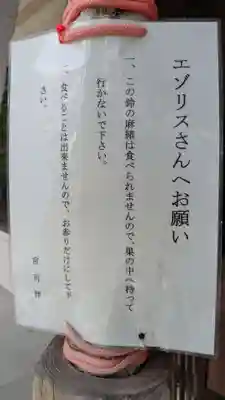 エゾリスさんへお願い
一、この鈴の麻縄は食べられませんので、巣の中へ持って
行かないで下さい。
一、食べることは出来ませんので、お参りだけにして下
さい。